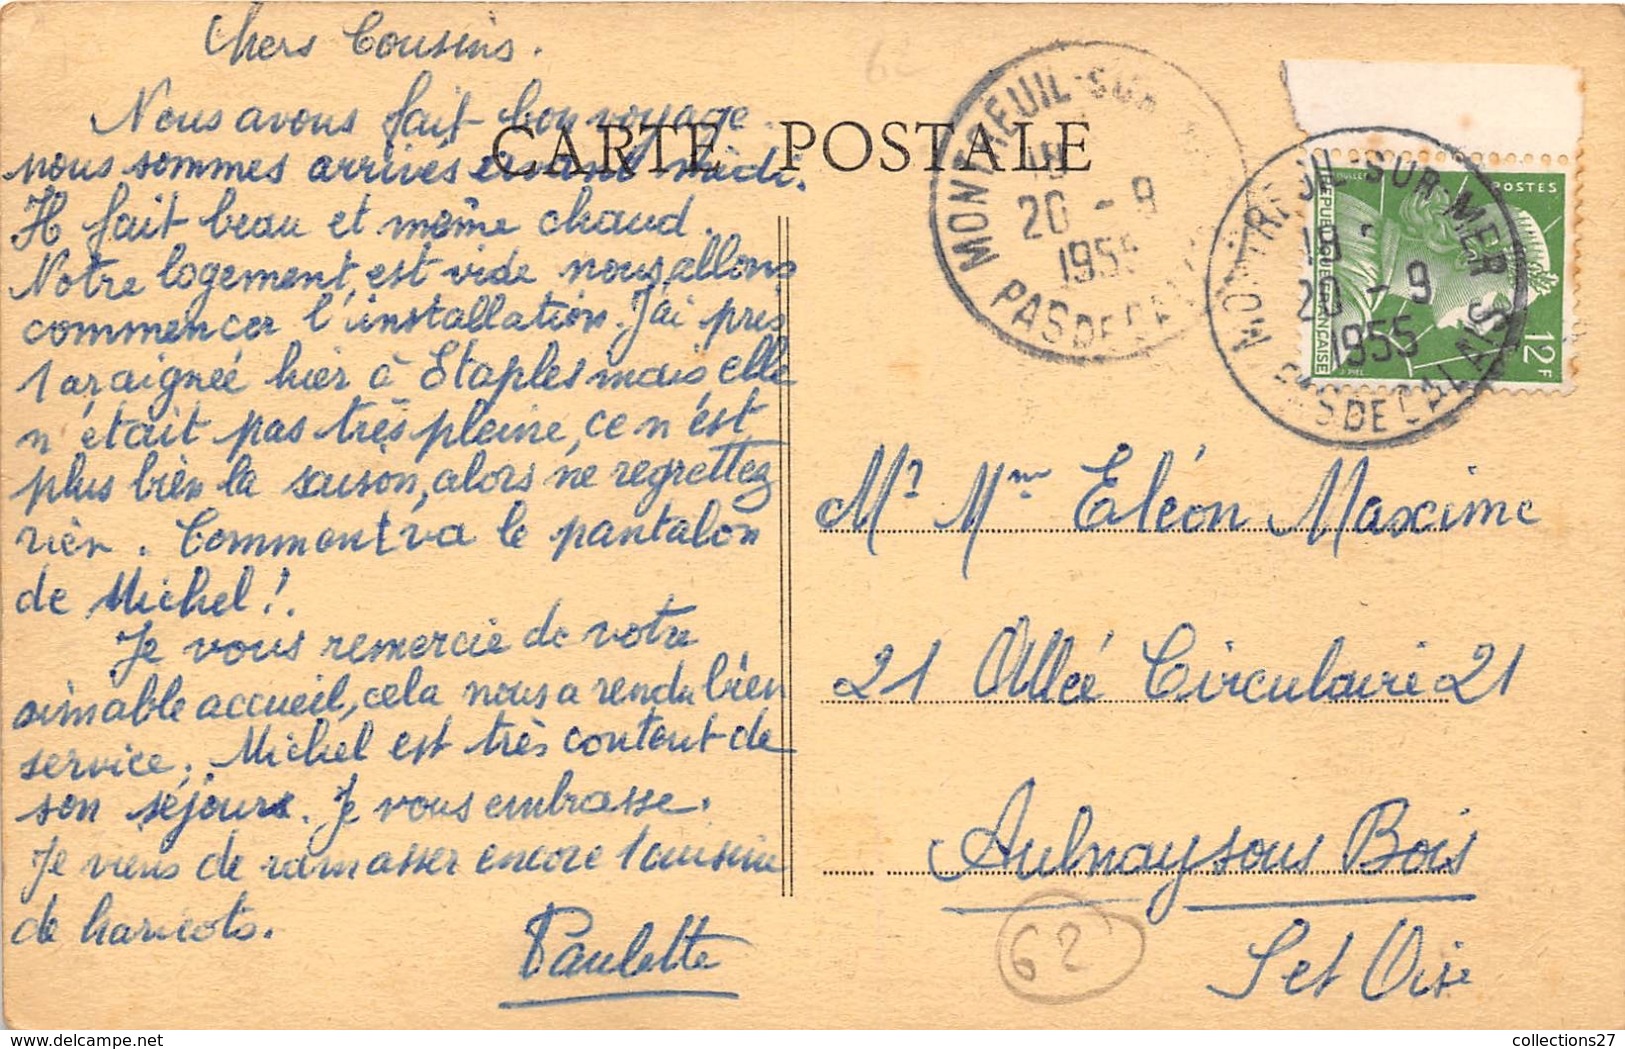 Chers Cousins.
Nous avons fait bon voyage
nous sommes arrivés avant midi.
Il fait beau et même chaud.
Notre logement est vide nous allons
commencer l'installation. J'ai pris
1 araignée hier à Etaples mais elle
n'était pas très pleine, ce n'est
plus bien la saison, alors ne regrettez
rien. Comment va le pantalon
de Michel!.
Je vous remercie de votre
aimable accueil, cela nous a rendu bien
service. Michel est très content de
son séjour. Je vous embrasse.
Je viens de ramasser encore 1 cuisine
de haricots.
Paulette
CARTE POSTALE
MONTREUIL-SUR
20 - 9
1955
PAS DE CALAIS
MONTREUIL-SUR-MER
18
20 - 9
1955
PAS DE CALAIS
POSTES
REPUBLIQUE FRANÇAISE
12F
MULLER
J. PIEL
Mr Mme Eléon Maxime
21 Allée Circulaire 21
Aulnay sous Bois
S et Oise
62
62
collections27